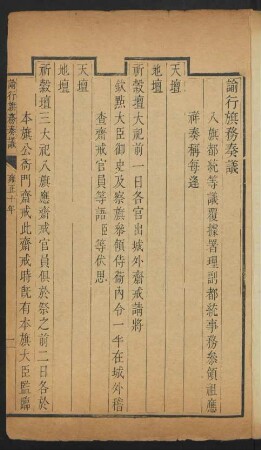 諭行旗務奏議
八旗都統等議覆據署理副都統事務參領祖應
祥奏稱每逢
天壇
地壇
祈穀壇大祀前一日各官出城外齋戒請將
欽點大臣御史及察旗參領侍衛內合一半在城外稽
查齋戒官員等語臣等伏思
天壇
地壇
祈穀壇三大祀八旗應齋戒官員俱於祭之前二日各於
本旗公衙門齋戒此齋戒時既有本旗大臣監臨
諭行旗務奏議
雍正十年
一